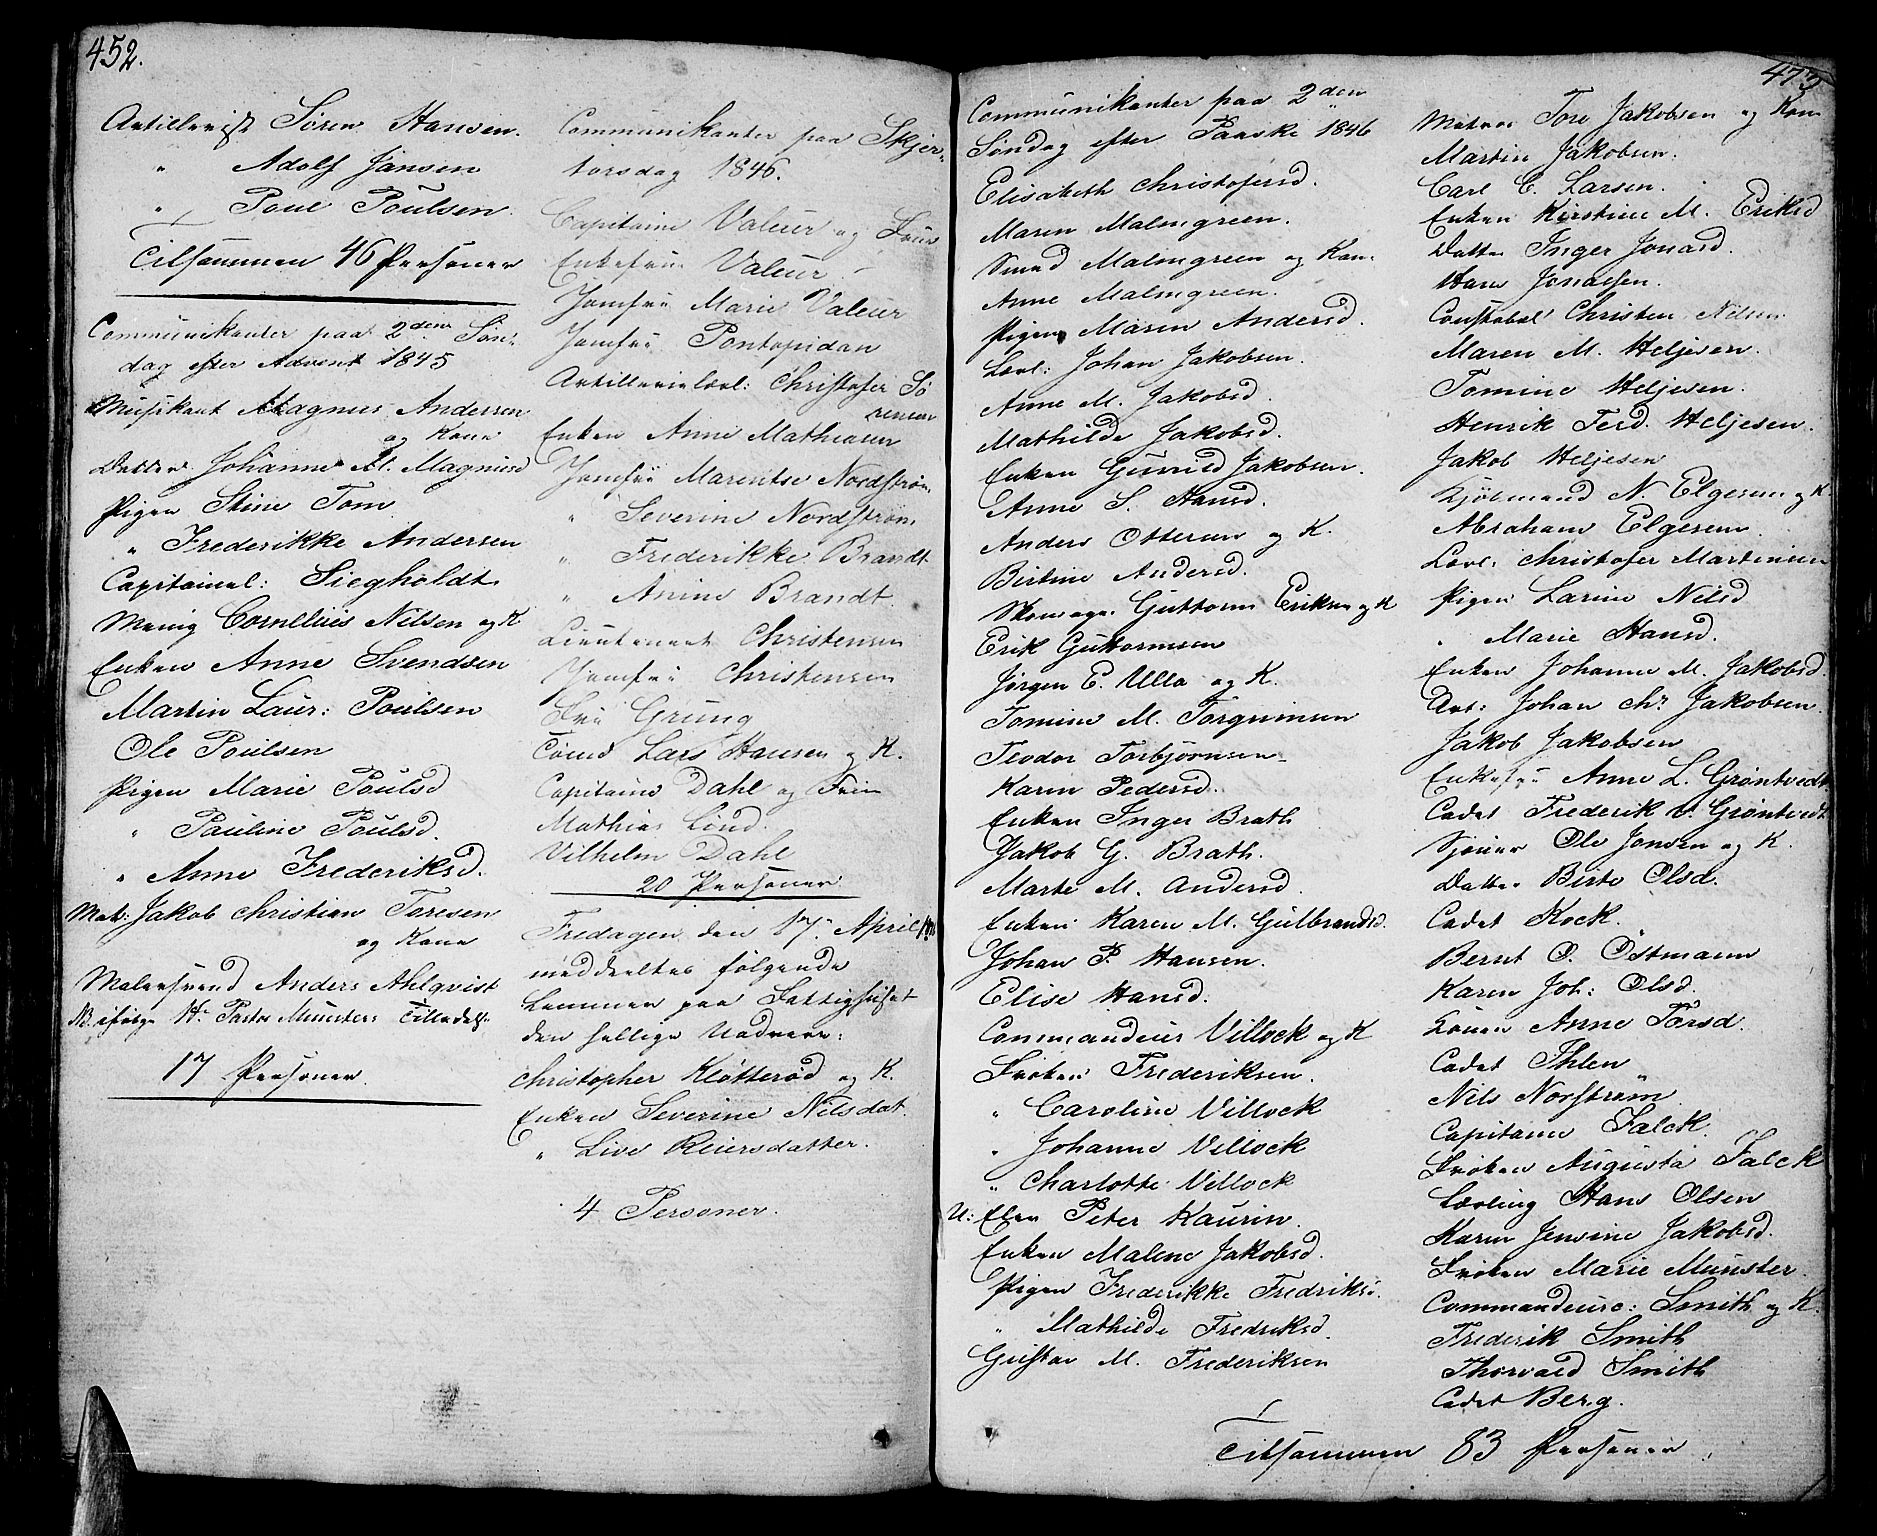 452.
Artillerist Søren Hansen.
" Adolf Jansen
" Poul Poulsen.
Tilsammen 46 Personer
Communikanter paa 2den Søn-
dag efter Advent 1845
Musikant Magnus Andersen
og Kone
Datter Johanne M. Magnusd
Pigen Stine Tom
" Frederikke Andersen
Capitainl: Siegholdt
Menig Cornellius Nilsen og K
Enken Anne Svendsen
Martin Laur: Poulsen
Ole Poulsen
Pigen Marie Poulsd
" Pauline Poulsd.
" Anne Frederiksd.
Mat: Jakob Christian Taresen
og Kone
Malersvend Anders Ahlqvist
NB ifølge Hr Pastor Münsters Tilladelse
17 Personer.
Communikanter paa Skjær-
torsdag 1846.
Capitaine Valeur og Frue
Enkefrue Valeur
Jomfru Marie Valeur
Jomfru Pontopidan
Artillerielærl: Christofer Sø
rensen
Enken Anne Mathiasen
Jomfru Marentse Nordstrøm
" Severine Nordstrøm
" Frederikke Brandt
" Anine Brandt.
Lieutenant Christensen
Jomfru Christensen
Fru Grung
Tømd Lars Hansen og K.
Capitaine Dahl og Frue
Mathias Lind.
Vilhelm Dahl
20 Personer.
Fredagen den 17. April
meddeeltes følgende
Lemmer paa Fattighuset
den hellige Nadvere:
Christopher Kløtterød og K.
Enken Severine Nilsdat.
" Live Reiersdatter.
4 Personer.
473
Communikanter paa 2den
Søndag efter Paaske 1846
Elisabeth Christofersd.
Maren Malmgreen.
Smed Malmgreen og Kone
Anne Malmgreen.
Pigen Maren Andersd.
Lærl: Johan Jakobsen.
Anne M. Jakobsd.
Mathilde Jakobsd.
Enken Gunild Jakobsen.
Anne S. Hansd.
Anders Ottersen og K.
Birtine Andersd.
Skomager Guttorm Eriksen og K
Erik Guttormsen
Jørgen E. Ulla og K.
Tomine M. Torgrimsen
Teodor Torbjørnsen
Karen Pedersd.
Enken Inger Brath
Jakob G. Brath.
Marte M. Andersd.
Enken Karen M. Gulbrandsd.
Johan P. Hansen.
Elise Hansd.
Commandeur Villock og K
Frøken Frederiksen.
" Caroline Villock
" Johanne Villock
" Charlotte Villock
U: Elev Peter Kaurin.
Enken Malene Jakobsd.
Pigen Frederikke Fredriksd.
" Mathilde Fredriksd.
Gustav M. Frederiksen
Matros Tore Jakobsen og Kone
Martin Jakobsen.
Carl C. Larsen.
Enken Kirstine M. Eriksd
Datter Inger Jonasd.
Hans Jonassen.
Constabel Christen Nilsen
Maren M. Heljesen.
Tomine Heljesen.
Henrik Ferd. Heljesen.
Jakob Heljesen
Kjølmand N. Elgesen og K.
Abraham Elgesen
Lærl: Christofer Martinsen
Pigen Larine Nilsd
" Marie Hansd.
Enken Johanne M. Jakobsd.
Art: Johan Chr Jakobsen.
Jakob Jakobsen
Enkefru Anne L. Grøntvedt
Cadet Frederik V. Grøntvedt
Sjouer Ole Jonsen og K.
Datter Birte Olsd.
Cadet Kock.
Bernt O. Østmann
Karen Joh: Olsd.
Konen Anne Torsd.
Cadet Ihlen
Nils Norstrøm
Capitaine Falck.
Frøken Augusta Falck
Lærling Hans Olsen
Karen Jensine Jakobsd.
Frøken Marie Munster.
Commandeurc: Smith og K.
Frederik Smith
Thorvald Smith
Cadet Berg.
Tilsammen 83 Personer.